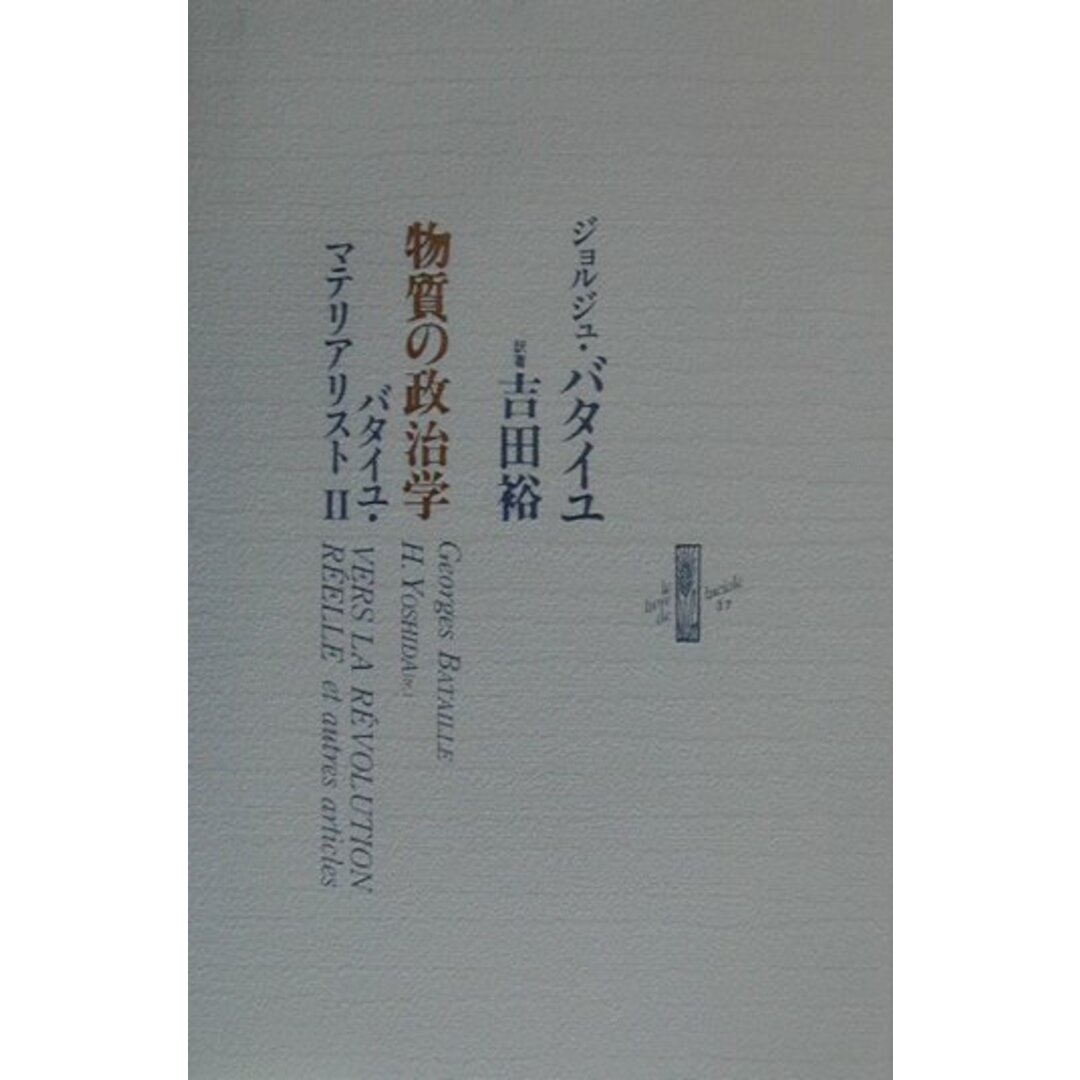 ジョルジュ・バタイユ
訳著 吉田裕
物質の政治学
バタイユ・
マテリアリスト II
Georges BATAILLE
H. YOSHIDA
VERS LA RÉVOLUTION
RÉELLE et autres articles
le
livre
de
luciole
37